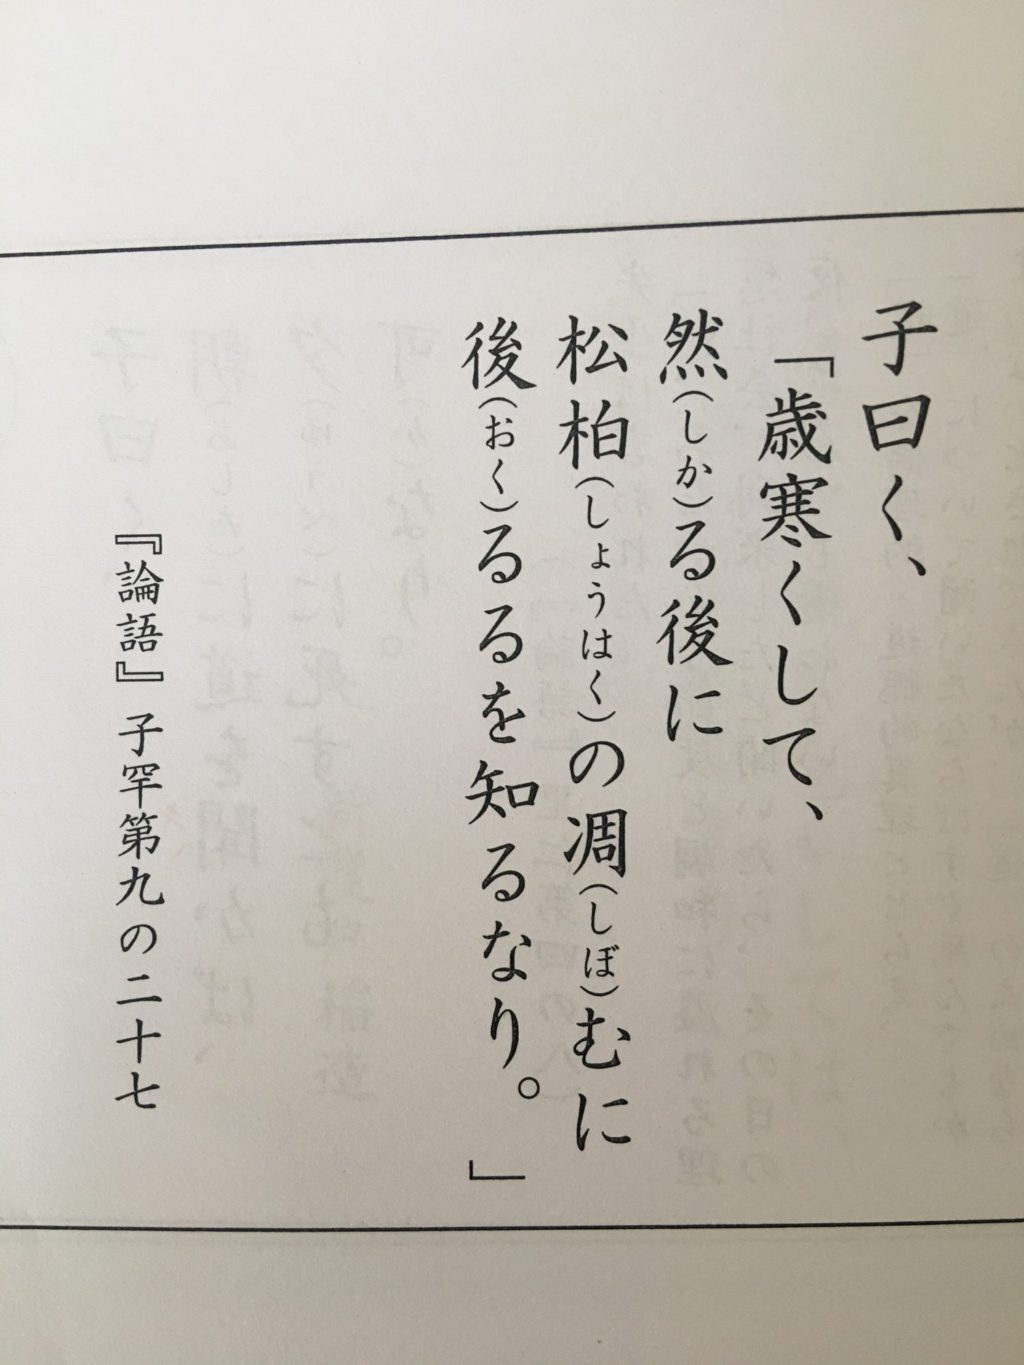 子曰く、
「歳寒くして、
然(しか)る後に
松柏(しょうはく)の凋(しぼ)むに
後(おく)るるを知るなり。」
『論語』子罕第九の二十七